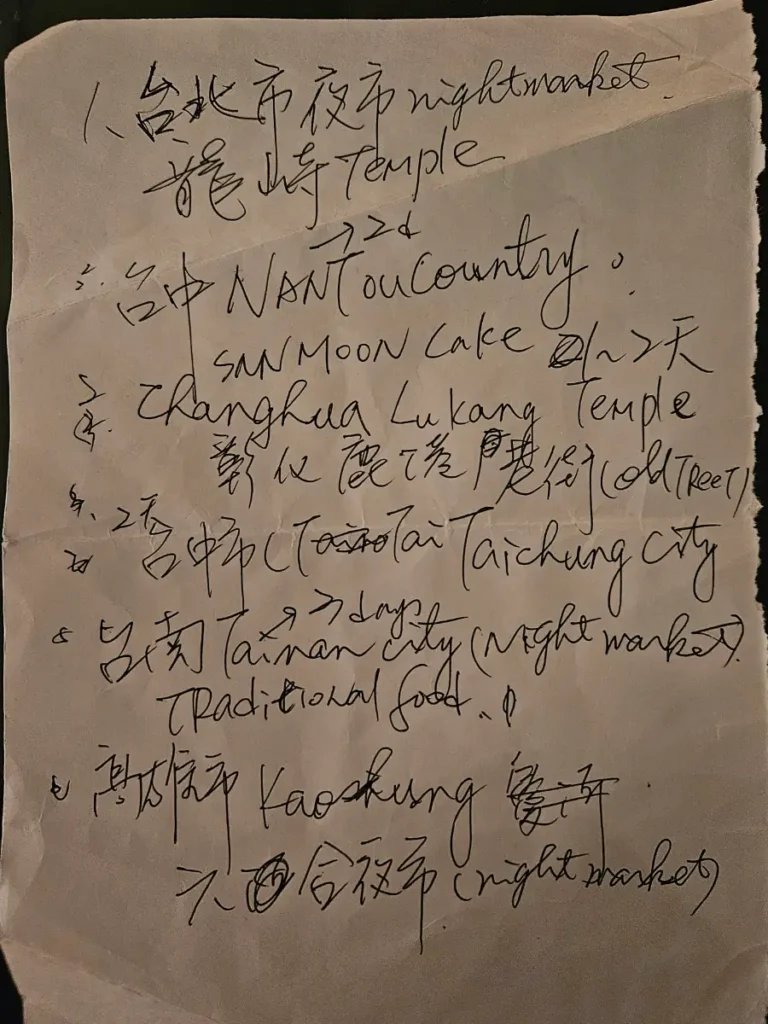 1、台北市夜市 nightmarket.
龍山寺 Temple
→2d
台中 NANTou Country。
SAN MOON Cake 1~2天
3. Changhua Lukang Temple
彰化鹿港老街(old TReeT)
4、2天
台中市 (Tai Taichung City
→3 days
5 台南 Tainan city (Night market).
TRaditional food.
6 高雄市 Kaoshung
六合夜市 (night market)